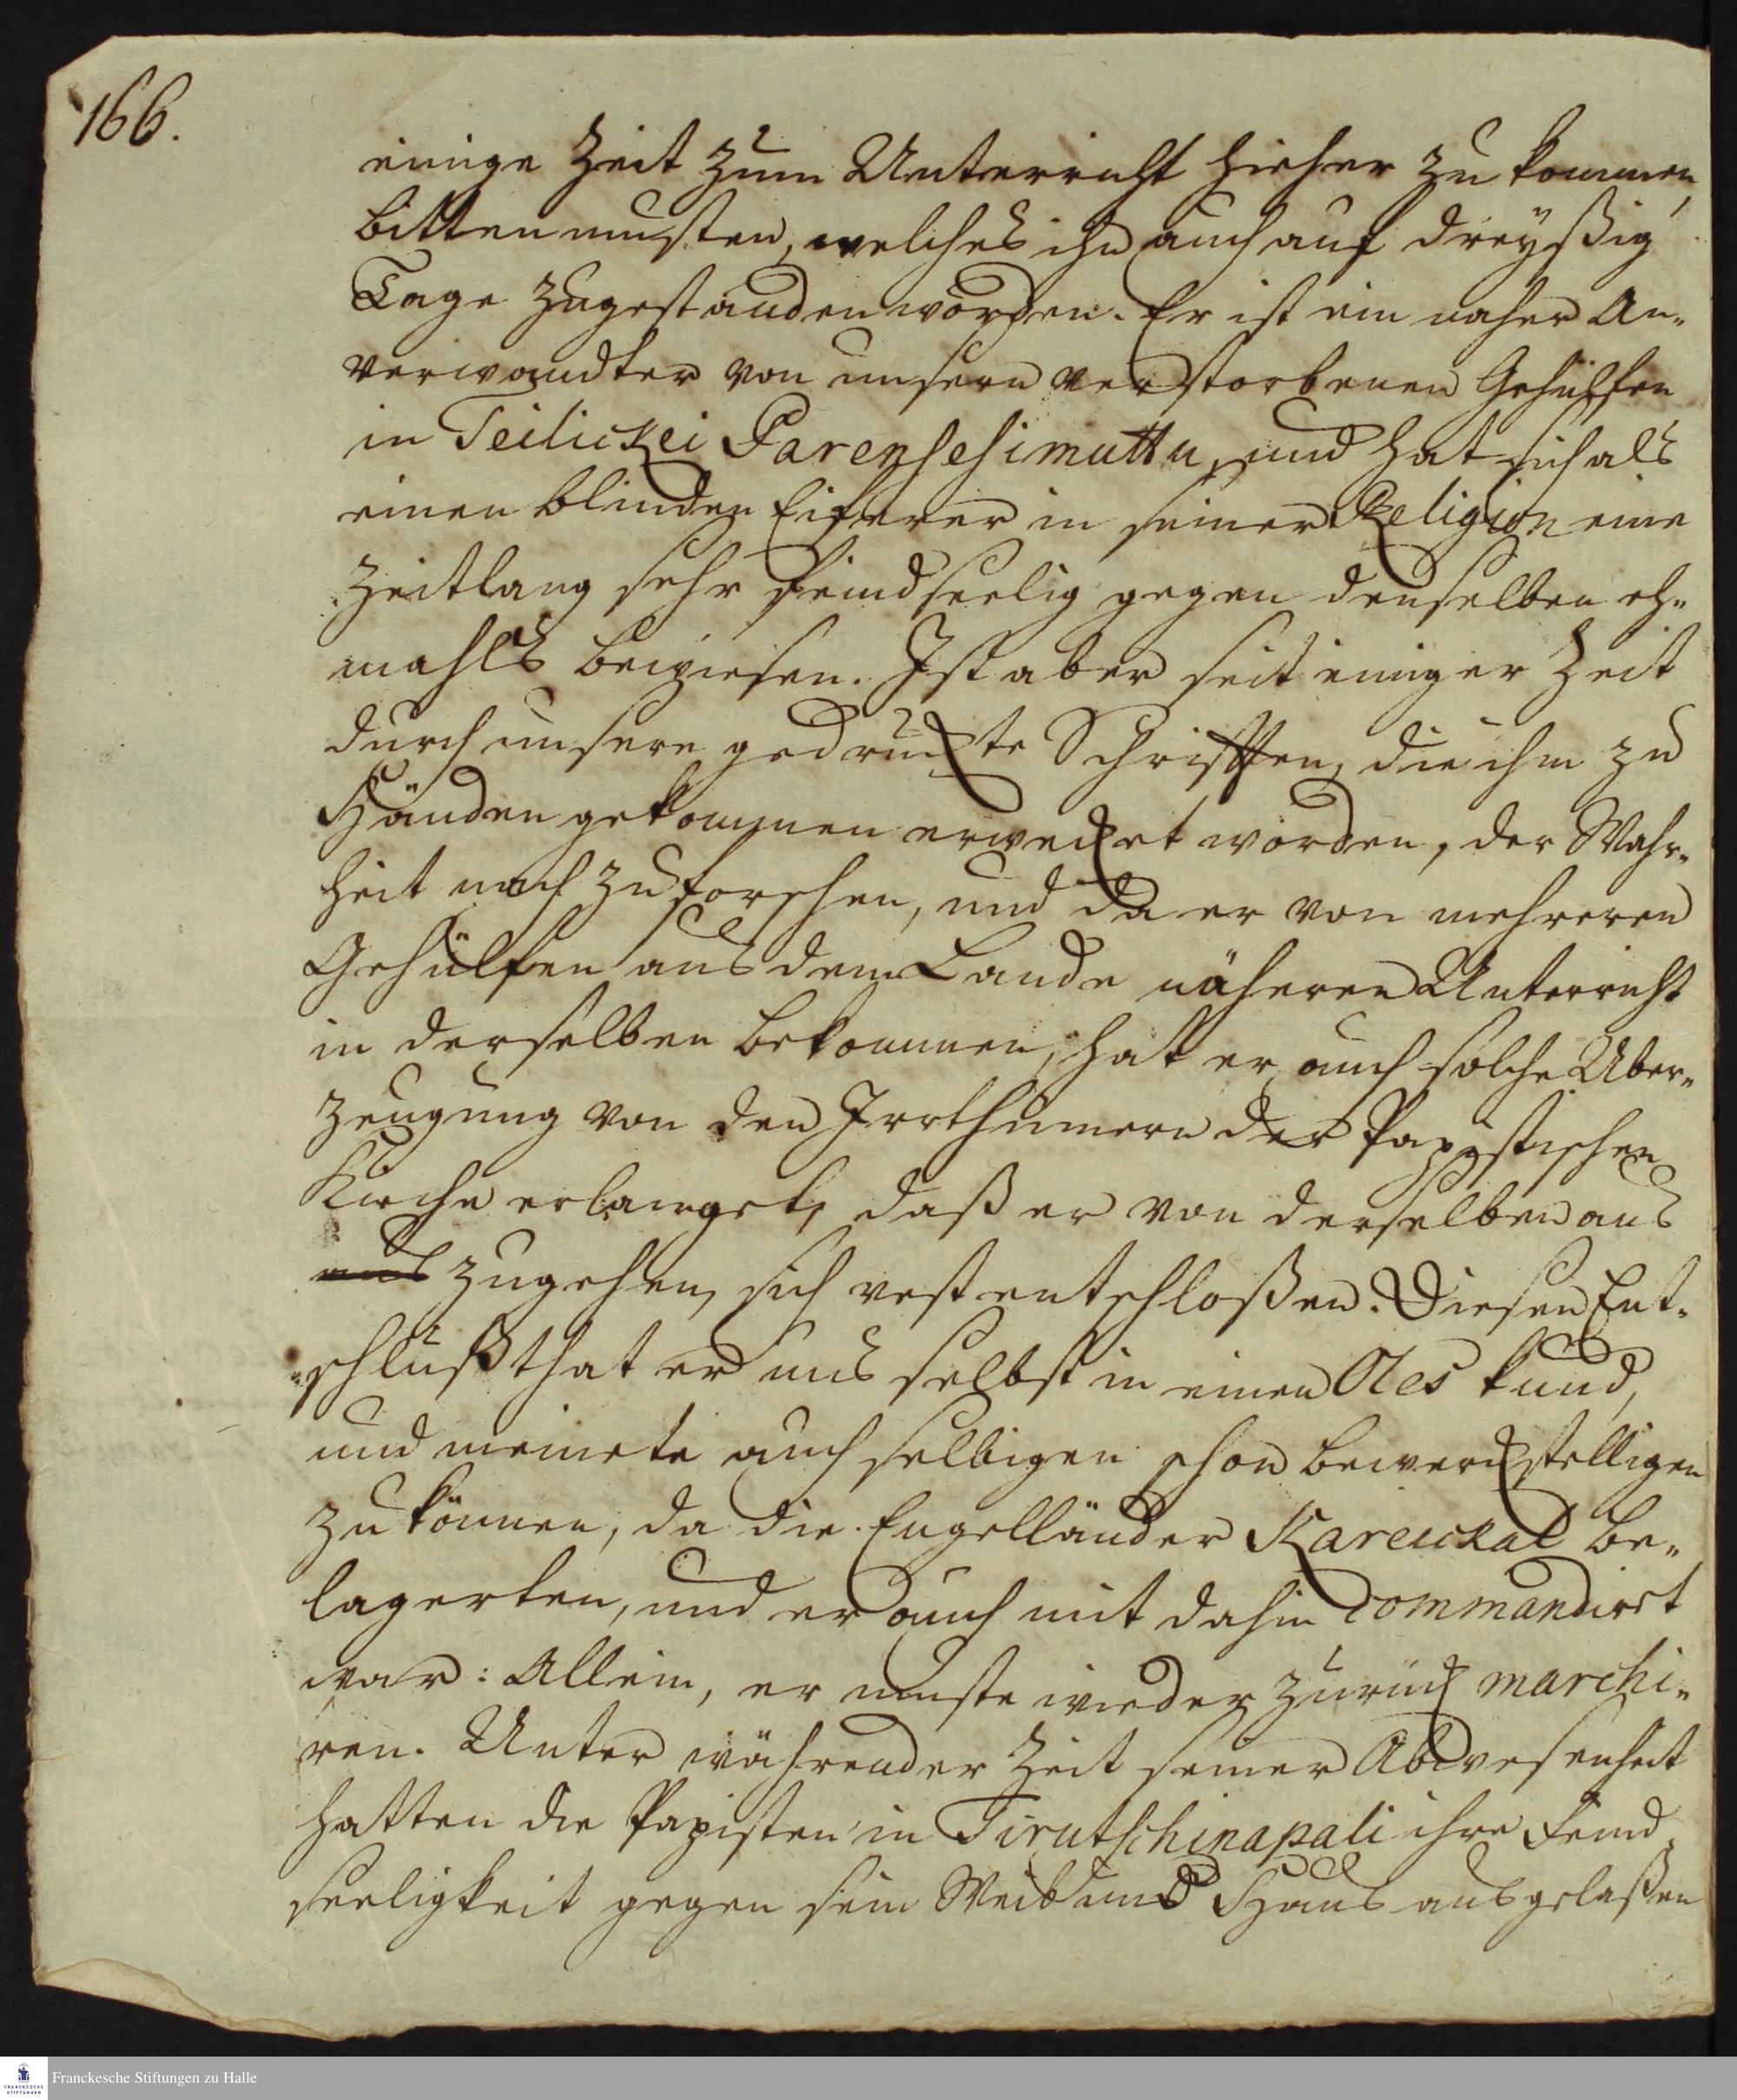 166.
einige Zeit zum Unterricht hieher zu kommen,
bitten musten, welches ihn auch auf dreyßig
Tage zugestanden worden. Er ist ein naher An-
verwandter von unsern verstorbenen Gehülfen
in Teilickei Parenschesimuttu, und hat sich als
einen blinden Eiferer in seiner Religion eine
Zeitlang sehr feindseelig gegen denselben eh-
mahls bewiesen. Ist aber seit einiger Zeit
durch unsere gedruckte Schrifften, die ihm zu
Händen gekommen erwecket worden, der Wahr-
heit nach zu forschen, und da er von mehreren
Gehülfen aus dem Lande näheren Unterricht
in derselben bekommen, hat er auch solche Uber-
zeugung von den Irrthümern der Papistischen
Kirche erlanget, daß er von derselben aus
aus zugehen, sich vest entschloßen. Diesen Ent-
schluß that er uns selbst in einen Oles kund,
und meinete auch selbigen schon bewerckstelligen
zu können, da die Engelländer Kareickal be-
lagerten, und er auch mit dahin commandirt
war: Allein, er muste wieder zurück marchi-
ren. Unter währender Zeit seiner Abwesenheit
hatten die Papisten in Tirutschinapali ihre Feind-
seeligkeit gegen sein Weib und Haus ausgelaßen
Franckesche Stiftungen zu Halle
FRANCKESCHE
STIFTUNGEN